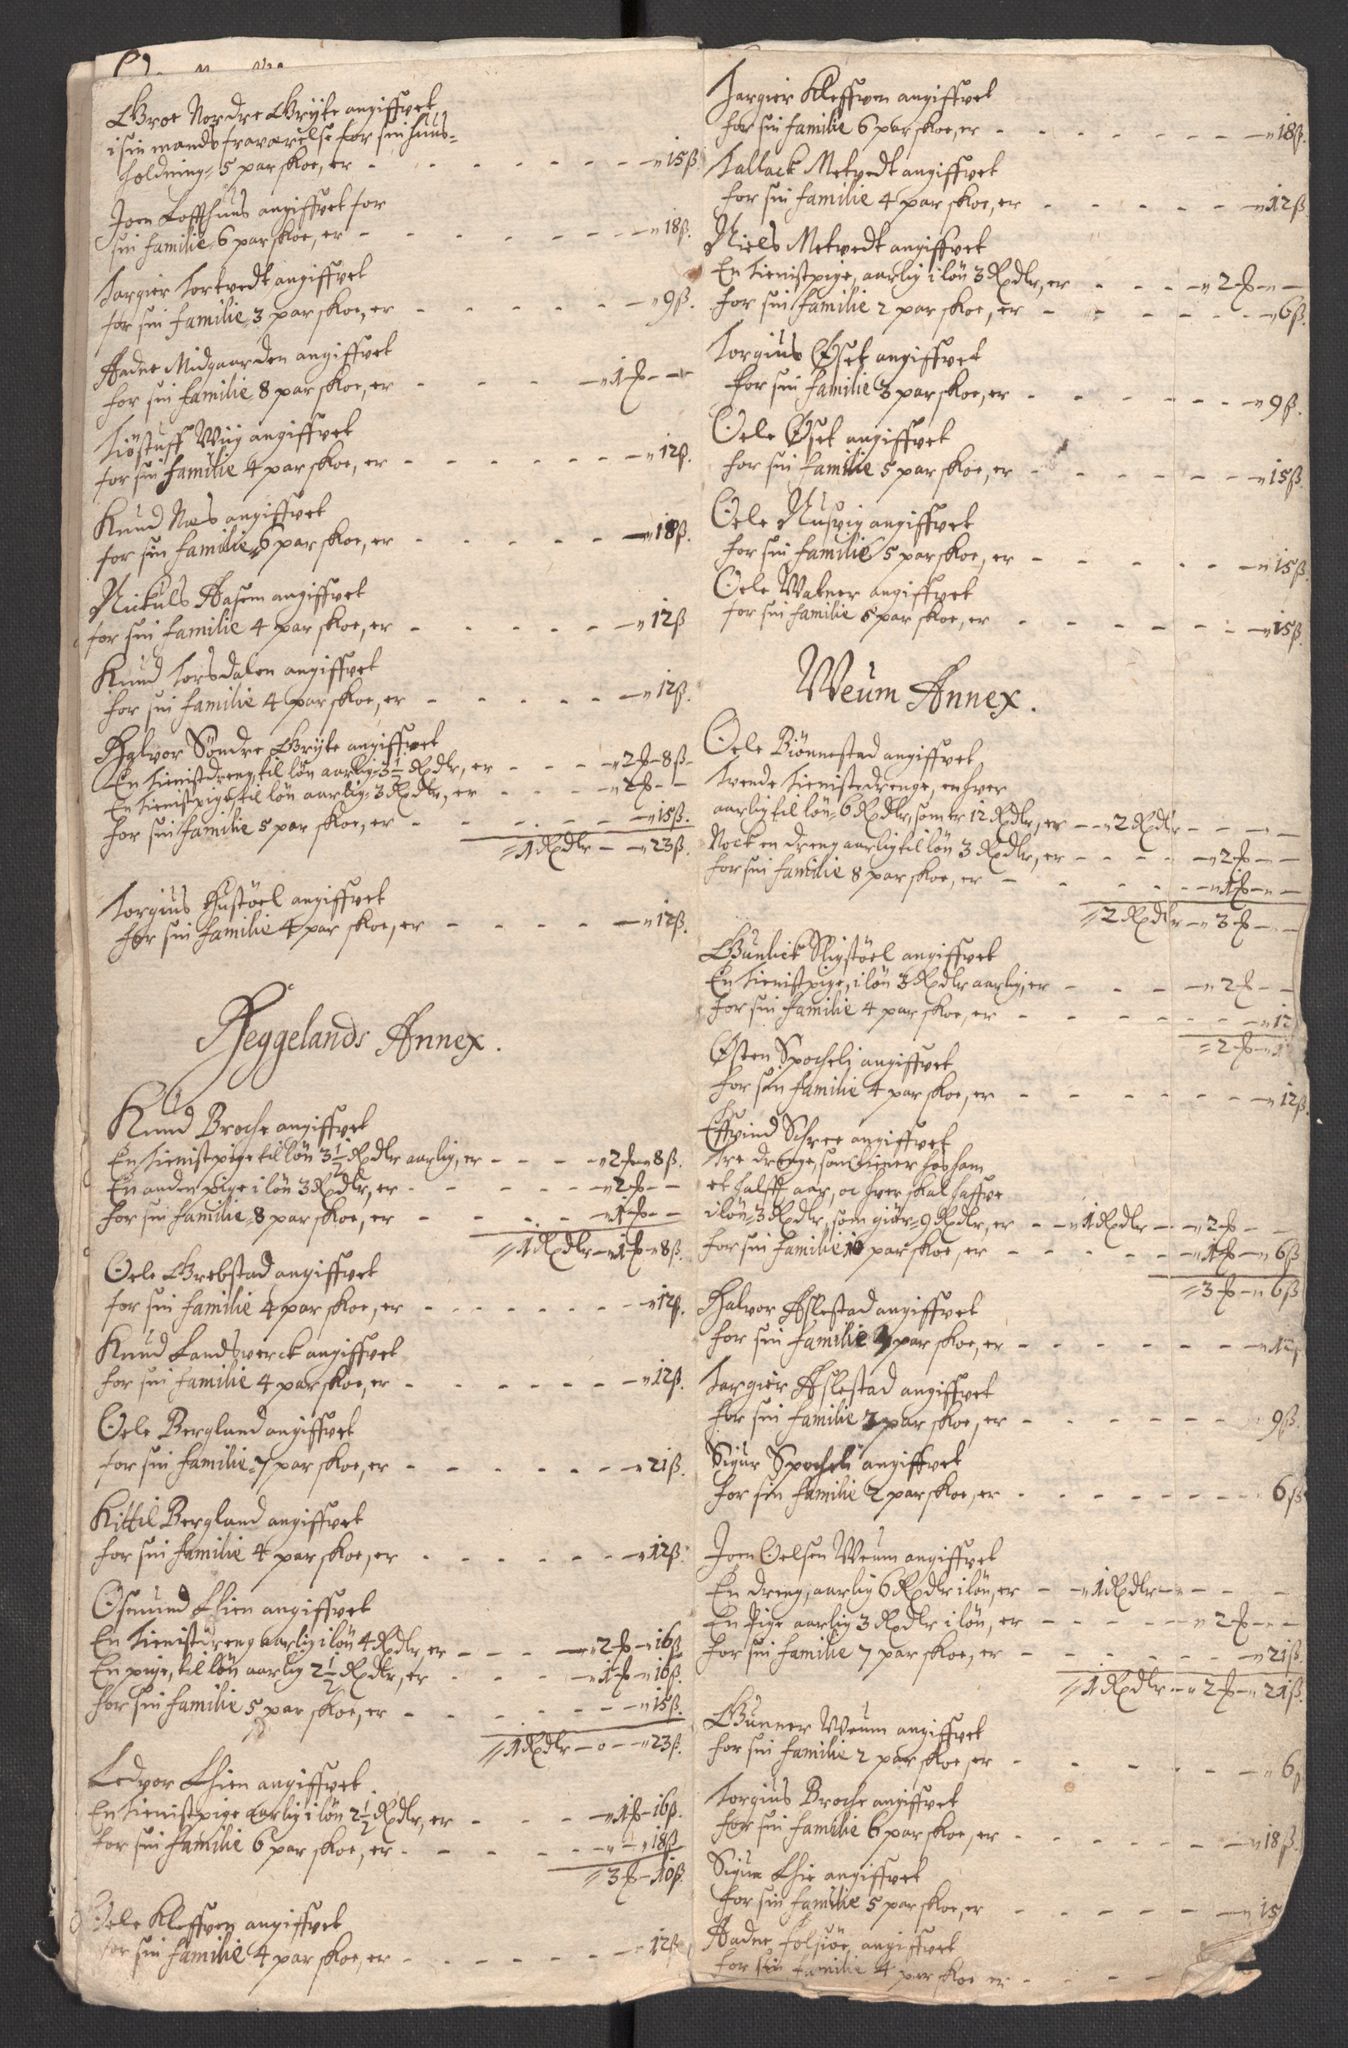 Groe Nordre Gryte angiffvet
i sin mands fraværelse for sin huus-
holdning 5 par skoe, er - - - " 15 ß.
Joen Loffthuus angiffvet for
sin familie 6 par skoe, er - - - " 18 ß.
Targier Tortvedt angiffvet
for sin familie 3 par skoe, er - - - " 9 ß.
Aadne Midgaarden angiffvet
for sin familie 8 par skoe, er - - - " 1 ƒ - -
Tiøstuff Wiig angiffvet
for sin familie 4 par skoe, er - - - " 12 ß.
Knud Næs angiffvet
for sin familie 6 par skoe, er - - - " 18 ß.
Nickuls Aasem angiffvet
for sin familie 4 par skoe, er - - - " 12 ß
Knud Torsdalen angiffvet
for sin familie 4 par skoe, er - - - " 12 ß.
Halvor Søndre Gryte angiffvet
En tienistdreng, til løn aarlig 3 1/2 Rdlr, er - - - " 2 ƒ - 8 ß -
En tienistpige til løn aarlig 3 Rdlr, er - - - " 2 ƒ - -
for sin familie 5 par skoe, er - - - " 15 ß.
1 Rdlr - " 23 ß.
Torgius Hustöel angiffvet
for sin familie 4 par skoe, er - - - " 12 ß.
Heggelands Annex.
Knud Broche angiffvet
En tienistpige til løn 3 1/2 Rdlr aarlig, er - - - " 2 ƒ " 8 ß.
En anden pige i løn 3 Rdlr, er - - - " 2 ƒ - -
for sin familie 8 par skoe, er - - - " 1 ƒ - -
1 Rdlr - " 1 ƒ - " 8 ß.
Oele Grebstad angiffvet
for sin familie 4 par skoe, er - - - " 12 ß.
Knud Landsverck angiffvet
for sin familie 4 par skoe, er - - - " 12 ß.
Oele Bergland angiffvet
for sin familie 7 par skoe, er - - - " 21 ß.
Kittil Bergland angiffvet
for sin familie 4 par skoe, er - - - " 12 ß.
Osmund Lien angiffvet
En tienistdreng aarlig i løn 4 Rdlr, er - - - " 2 ƒ - " 16 ß
En pige, til løn aarlig 2 1/2 Rdlr, er - - - " 1 ƒ - " 16 ß.
for sin familie 5 par skoe, er - - - " 15 ß.
1 Rdlr - o - " 23 ß.
Ledvor Lien angiffvet
En tienistpige aarlig i løn 2 1/2 Rdlr, er - - - " 1 ƒ - 16 ß.
for sin familie 6 par skoe, er - - - " 18 ß
3 ƒ - 10 ß
Oele Kleffven angiffvet
for sin familie 4 par skoe, er - - - " 12 ß
Targier Kleffven angiffvet
for sin familie 6 par skoe, er - - - " 18 ß.
Tallack Metvedt angiffvet
for sin familie 4 par skoe, er - - - " 12 ß
Niels Metvedt angiffvet
En tienistpige, aarlig i løn 3 Rdlr, er - - - " 2 ƒ " -
for sin familie 2 par skoe, er - - - " 6 ß.
Torgius Øset angiffvet
for sin familie 3 par skoe, er - - - " 9 ß.
Oele Øset angiffvet
for sin familie 5 par skoe, er - - - " 15 ß
Oele Nusvig angiffvet
for sin familie 5 par skoe, er - - - " 15 ß.
Oele Watner angiffvet
for sin familie 5 par skoe, er - - - " 15 ß.
Weum Annex.
Oele Biönnestad angiffvet,
tvende tienistedrenge, enhver
aarlig til løn 6 Rdlr, som er 12 Rdlr, er - " 2 Rdlr - - -
Nock en dreng aarlig til løn 3 Rdlr, er - - - " 2 ƒ - -
for sin familie 8 par skoe, er - - - " 1 ƒ " -
2 Rdlr - " 3 ƒ - -
Gunlick Sligstöel angiffvet
En tienistpige, i løn 3 Rdlr aarlig, er - - - " 2 ƒ - -
for sin familie 4 par skoe, er - - - " 12
2 ƒ - " 1
Østen Spocheli angiffvet
for sin familie 4 par skoe, er - - - " 12 ß
Effvind Schree angiffvet
tre drenge, som tiener hos ham
et halfft aar, oc hver skal haffve
i løn 3 Rdlr, som giør 9 Rdlr, er - " 1 Rdlr - " 2 ƒ - -
for sin familie 10 par skoe, er - - - " 1 ƒ - " 6 ß
3 ƒ - " 6 ß
Halvor Aslestad angiffvet
for sin familie 4 par skoe, er - - - " 12
Targier Aslestad angiffvet
for sin familie 3 par skoe, er - - - 9 ß.
Sigur Spocheli angiffvet
for sin familie 2 par skoe, er - - - 6 ß
Joen Oelsen Weum angiffvet
En dreng, aarlig 6 Rdlr i løn, er - " 1 Rdlr - " - - -
En Pige aarlig 3 Rdlr i løn, er - - - " 2 ƒ " -
for sin familie 7 par skoe, er - - - " 21 ß.
1 Rdlr - " 2 ƒ - " 21 ß.
Gunner Weum angiffvet
for sin familie 2 par skoe, er - - - " 6
Torgius Broche angiffvet
for sin familie 6 par skoe, er - - - " 18 ß.
Sigur Lie angiffvet
for sin familie 5 par skoe, er - - - " 15
Aadne Folsiöe, angiffvet
for sin familie 4 par skoe er - - -